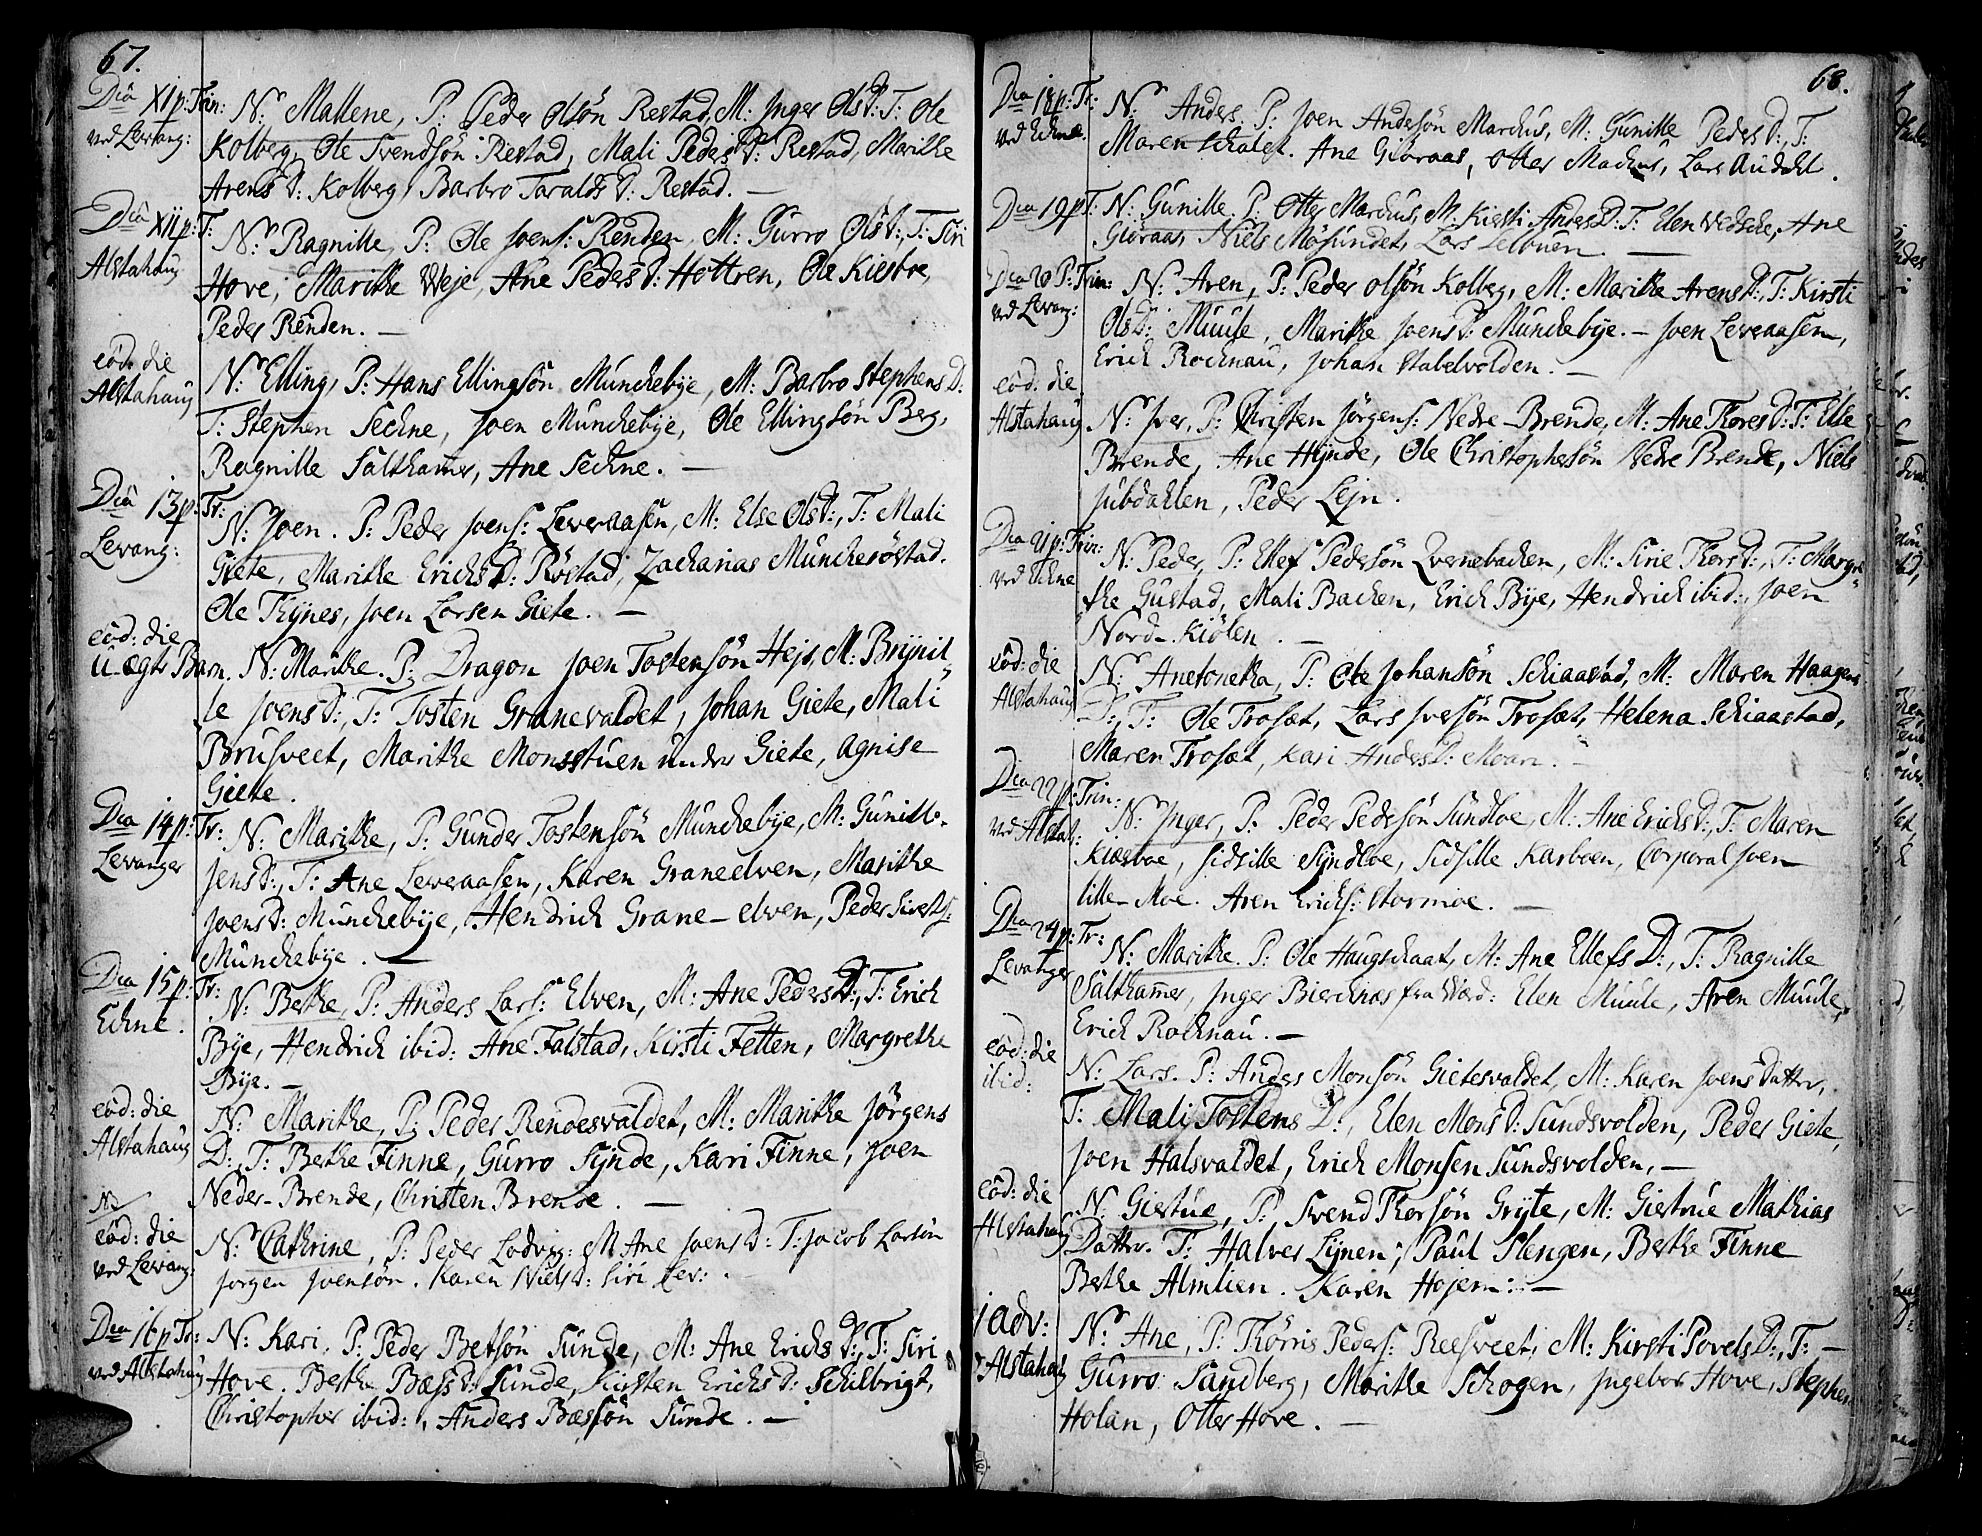 67.
Dia XI p: Trin: N: Mallene, P: Peder Olsön Restad, M: Inger OlsD: T: Ole
ved Levang: Kolberg, Ole Svendsön Restad, Mali PedersD: Restad, Marithe
ArensD: Kolberg, Barbro TaraldsD: Restad. —
Dia XII p: T: N: Ragnille, P: Ole Joens: Renden, M: Gurro OlsD:, T: Siri
Alstahaug Hove, Marithe Weje, Ane PedersD: Hottren, Ole Kiesboe,
Peder Renden. —
eod: die N: Elling, P: Hans Ellingsön Munchebye, M: Barbro StephensD:
Alstahaug T: Stephen Sechne, Joen Munchebye, Ole Ellingsön Berg,
Ragnille Salthamer, Ane Sechne. —
Dia 13 p: Tr: N: Joen. P: Peder Joens: Leveraasen, M: Else OlsD:, T: Mali
Levang: Giete, Marithe ErichsD: Röstad, Zacharias Muncheröstad.
Ole Thynes, Joen Larsen Giete. —
eod: die
U-ægte Barn. N: Marithe. P: Dragon Joen Tostensön Hejs, M: Brynil„
le JoensD:, T: Tosten Granevaldet, Johan Giete, Mali
Brusveet, Marithe Monsstuen under Giete, Agnise
Giete.
Dia 14 p: Tr: N: Marithe, P: Gunder Tostensön Munchebye, M: Gunille
Levanger JensD:, T: Ane Leveraasen, Karen Graneelven, Marithe
JoensD: Munchebye, Hendrich Grane-elven, Peder Siverts:
Munchebye. —
Dia 15 p: Tr: N: Bethe, P: Anders Lars: Elven, M: Ane PedersD:, T: Erich
Echne. Bye, Hendrich ibid: Ane Falstad, Kirsti Fetten, Margrethe
Bye. —
eod: die N: Marithe, P: Peder Rendesvaldet, M: Marithe Jörgens
Alstahaug D:, T: Bethe Finne, Gurro Synde, Kari Finne, Joen
Neder-Brende, Christen Brende. —
NB
eod: die N: Cathrine, P: Peder Lodvig: M: Ane JoensD: T: Jacob Larsön
ved Levang: Jörgen Joensön. Karen NielsD: Siri Lev:.
Dia 16 p Tr: N: Kari, P: Peder Betsön Sunde, M: Ane ErichsD:, T: Siri
ved Alstahaug Hove. Bethe BæssD: Sunde, Kirsten ErichsD: Schilbrigt,
Christopher ibid:, Anders Bæssön Sunde. —
68.
Dia 18 p: Tr: N: Anders. P: Joen Andersön Marchus, M: Gunille PedersD:, T:
ved Echne. Maren Schalet. Ane Gioraas, Otter Marchus, Lars Audahl.
Dia 19 p T. N: Gunille. P: Otter Marchus, M: Kirsti AndersD: T: Elen Vedsche, Ane
Gioraas, Niels Mosundet, Lars Lelbuen. —
Dia 20 P: Trin: N: Aren, P: Peder Olsön Kolberg, M: Marithe ArensD:, T: Kirsti
ved Levang: OlsD: Muule, Marithe JoensD: Munchebye. – Joen Leveraasen,
Erich Rochnau, Johan Stabelvolden. —
eod: die
Alstahaug N: Iver, P: Christen Jörgens: Nedre-Brende, M: Ane ThoresD: T: Else
Brende, Ane Hynde, Ole Christophersön Nedre Brende, Niels
Jubdahlen, Peder Lejn.
Dia 21 p: Trin: N: Peder, P: Ellef Pedersön Qvernebachen, M: Sirie ThorsD:, T: Margre„
ved Echne the Gustad, Mali Bachen, Erich Bye, Hendrich ibid:, Joen
Nord-Kiölen. —
eod: die N: Anetonetha, P: Ole Johansön Schiaastad, M: Maren Haagens
Alstahaug D:, T: Ole Trosæt, Lars Iversön Trosæt, Helena Schiaastad,
Maren Trosæt, Kari AndersD: Moan. —
Dia 22 p: Trin: N: Inger, P: Peder Pedersön Sundloe, M: Ane ErichsD:, T: Maren
ved Alstah: Kiæsboe, Sidsille Syndloe, Sidsille Karboen, Corporal Joen
lille-Moe. Aren Erichs: Stormoe. —
Dia 24 p: Tr: N: Marithe. P: Ole Haugschaat, M: Ane EllefsD:, T: Ragnille
Levanger Salthammer, Inger Bierchnæs fra Værd: Elen Muule, Aren Muule,
Erich Rochnau. —
eod: die N: Lars. P: Anders Monsön Gietesvaldet, M: Karen Joens Datter,
ibid: T: Mali TostensD:, Elen MonsD: Sundsvolden, Peder Giete,
Joen Halsvaldet, Erich Monsen Sundsvolden, —
eod: die N: Giertrue, P: Svend Thorsön Gryte, M: Giertrue Mathias
Alstahaug Datter. T: Halver Lynen; Paul Slengen, Bethe Finne
Bethe Almlien. Karen Hojem: —
1 adv: N: Ane, P: Thörris Peders: Reesveet, M: Kirsti PovelsD:, T: —
Alstahaug Gurro Sandberg, Marithe Schogen, Ingebor Hove, Stephen
Holan, Otter Hove. —